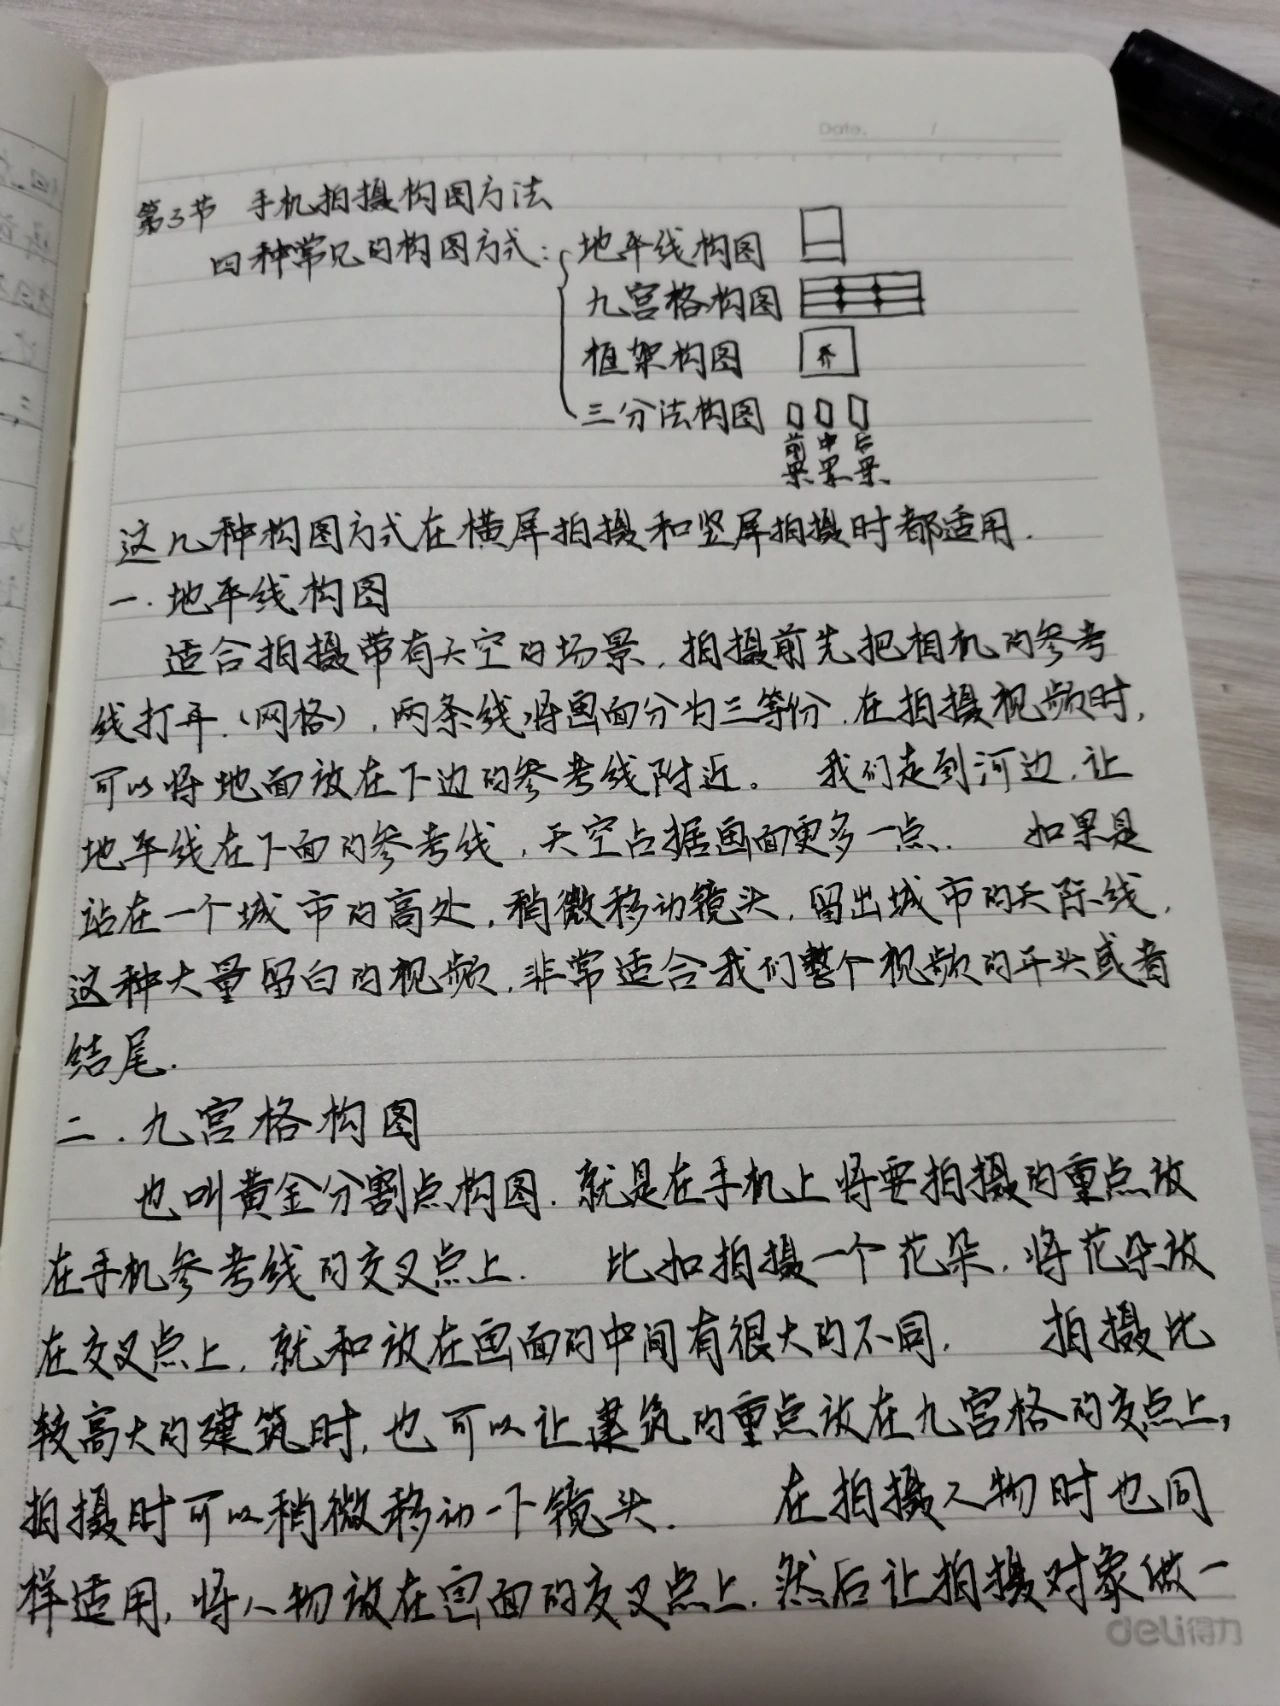 Date. /
第3节 手机拍摄构图方法
四种常见的构图方式：
地平线构图
九宫格构图
框架构图
三分法构图
前景 中景 后景
这几种构图方式在横屏拍摄和竖屏拍摄时都适用.
一.地平线构图
适合拍摄带有天空的场景,拍摄前先把相机的参考
线打开.(网格),两条线将画面分为三等份.在拍摄视频时,
可以将地面放在下边的参考线附近。 我们走到河边,让
地平线在下面的参考线,天空占据画面更多一点. 如果是
站在一个城市的高处,稍微移动镜头,留出城市的天际线,
这种大量留白的视频,非常适合我们整个视频的开头或者
结尾.
二.九宫格构图
也叫黄金分割点构图.就是在手机上将要拍摄的重点放
在手机参考线的交叉点上. 比如拍摄一个花朵,将花朵放
在交叉点上,就和放在画面的中间有很大的不同. 拍摄比
较高大的建筑时,也可以让建筑的重点放在九宫格的交点上,
拍摄时可以稍微移动一下镜头. 在拍摄人物时也同
样适用,将人物放在画面的交叉点上.然后让拍摄对象做一
deli得力